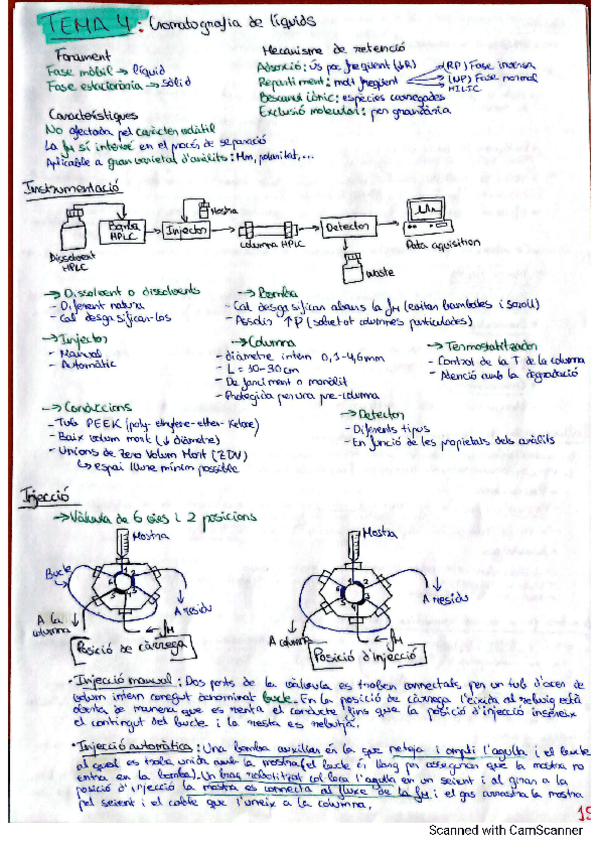 TEMA 4: Cromatografia de líquids
Fonament
Fase mòbil → líquid
Fase estacionària → sòlid
Mecanisme de retenció
Adsorció: ús poc freqüent (↓R)
Repartiment: molt freqüent
(RP) Fase inversa
(NP) Fase normal
HILIC
Bescanvi iònic: espècies carregades
Exclusió molecular: per grandària
Característiques
No afectada pel caràcter volàtil
La fM sí intervé en el procés de separació
Aplicable a gran varietat d'anàlits: Mm, polaritat,...
Instrumentació
Mostra
Bomba HPLC
Injector
columna HPLC
Detector
Data aquisition
Dissolvent HPLC
waste
→ Dissolvent o dissolvents
- Diferent natura
- Cal desgasificar-los
→ Bomba
- Cal desgasificar abans la fM (evitar bombolles i soroll)
- Assolir ↑P (sobretot columnes particulades)
→ Injector
- Manual
- Automàtic
→ Columna
- diàmetre intern 0,1-4,6mm
- L = 10-30cm
- De farciment o monòlit
- Protegida per una pre-columna
→ Termostatitzador
- Control de la T de la columna
- Atenció amb la degradació
→ Conduccions
- Tub PEEK (poly-ethylene-ether-Ketone)
- Baix volum mort (↓ diàmetre)
- Unions de Zero Volum Mort (ZDV)
↳ espai lliure mínim possible
→ Detector
- Diferents tipus
- En funció de les propietats dels anàlits
Injecció
→ Vàlvula de 6 vies i 2 posicions
Mostra
Bucle
A la columna
A residu
fM
Posició de càrrega
Mostra
A residu
A columna
fM
Posició d'injecció
• Injecció manual: Dos ports de la vàlvula es troben connectats per un tub d'acer de
volum intern conegut denominat bucle. En la posició de càrrega l'eixida al rebuig està
oberta de manera que es renta el conducte, fins que la posició d'injecció insereix
el contingut del bucle i la resta es rebutja.
• Injecció automàtica: Una bomba auxiliar és la que neteja i ompli l'agulla i el bucle
al qual es troba unida amb la mostra (el bucle és llarg per assegurar que la mostra no
entra en la bomba). Un braç robotitzat col·loca l'agulla en un seient i al girar a la
posició d'injecció la mostra es connecta al fluxe de la fM i el gas arrastra la mostra
pel seient i el cable que l'uneix a la columna.
15
Scanned with CamScanner